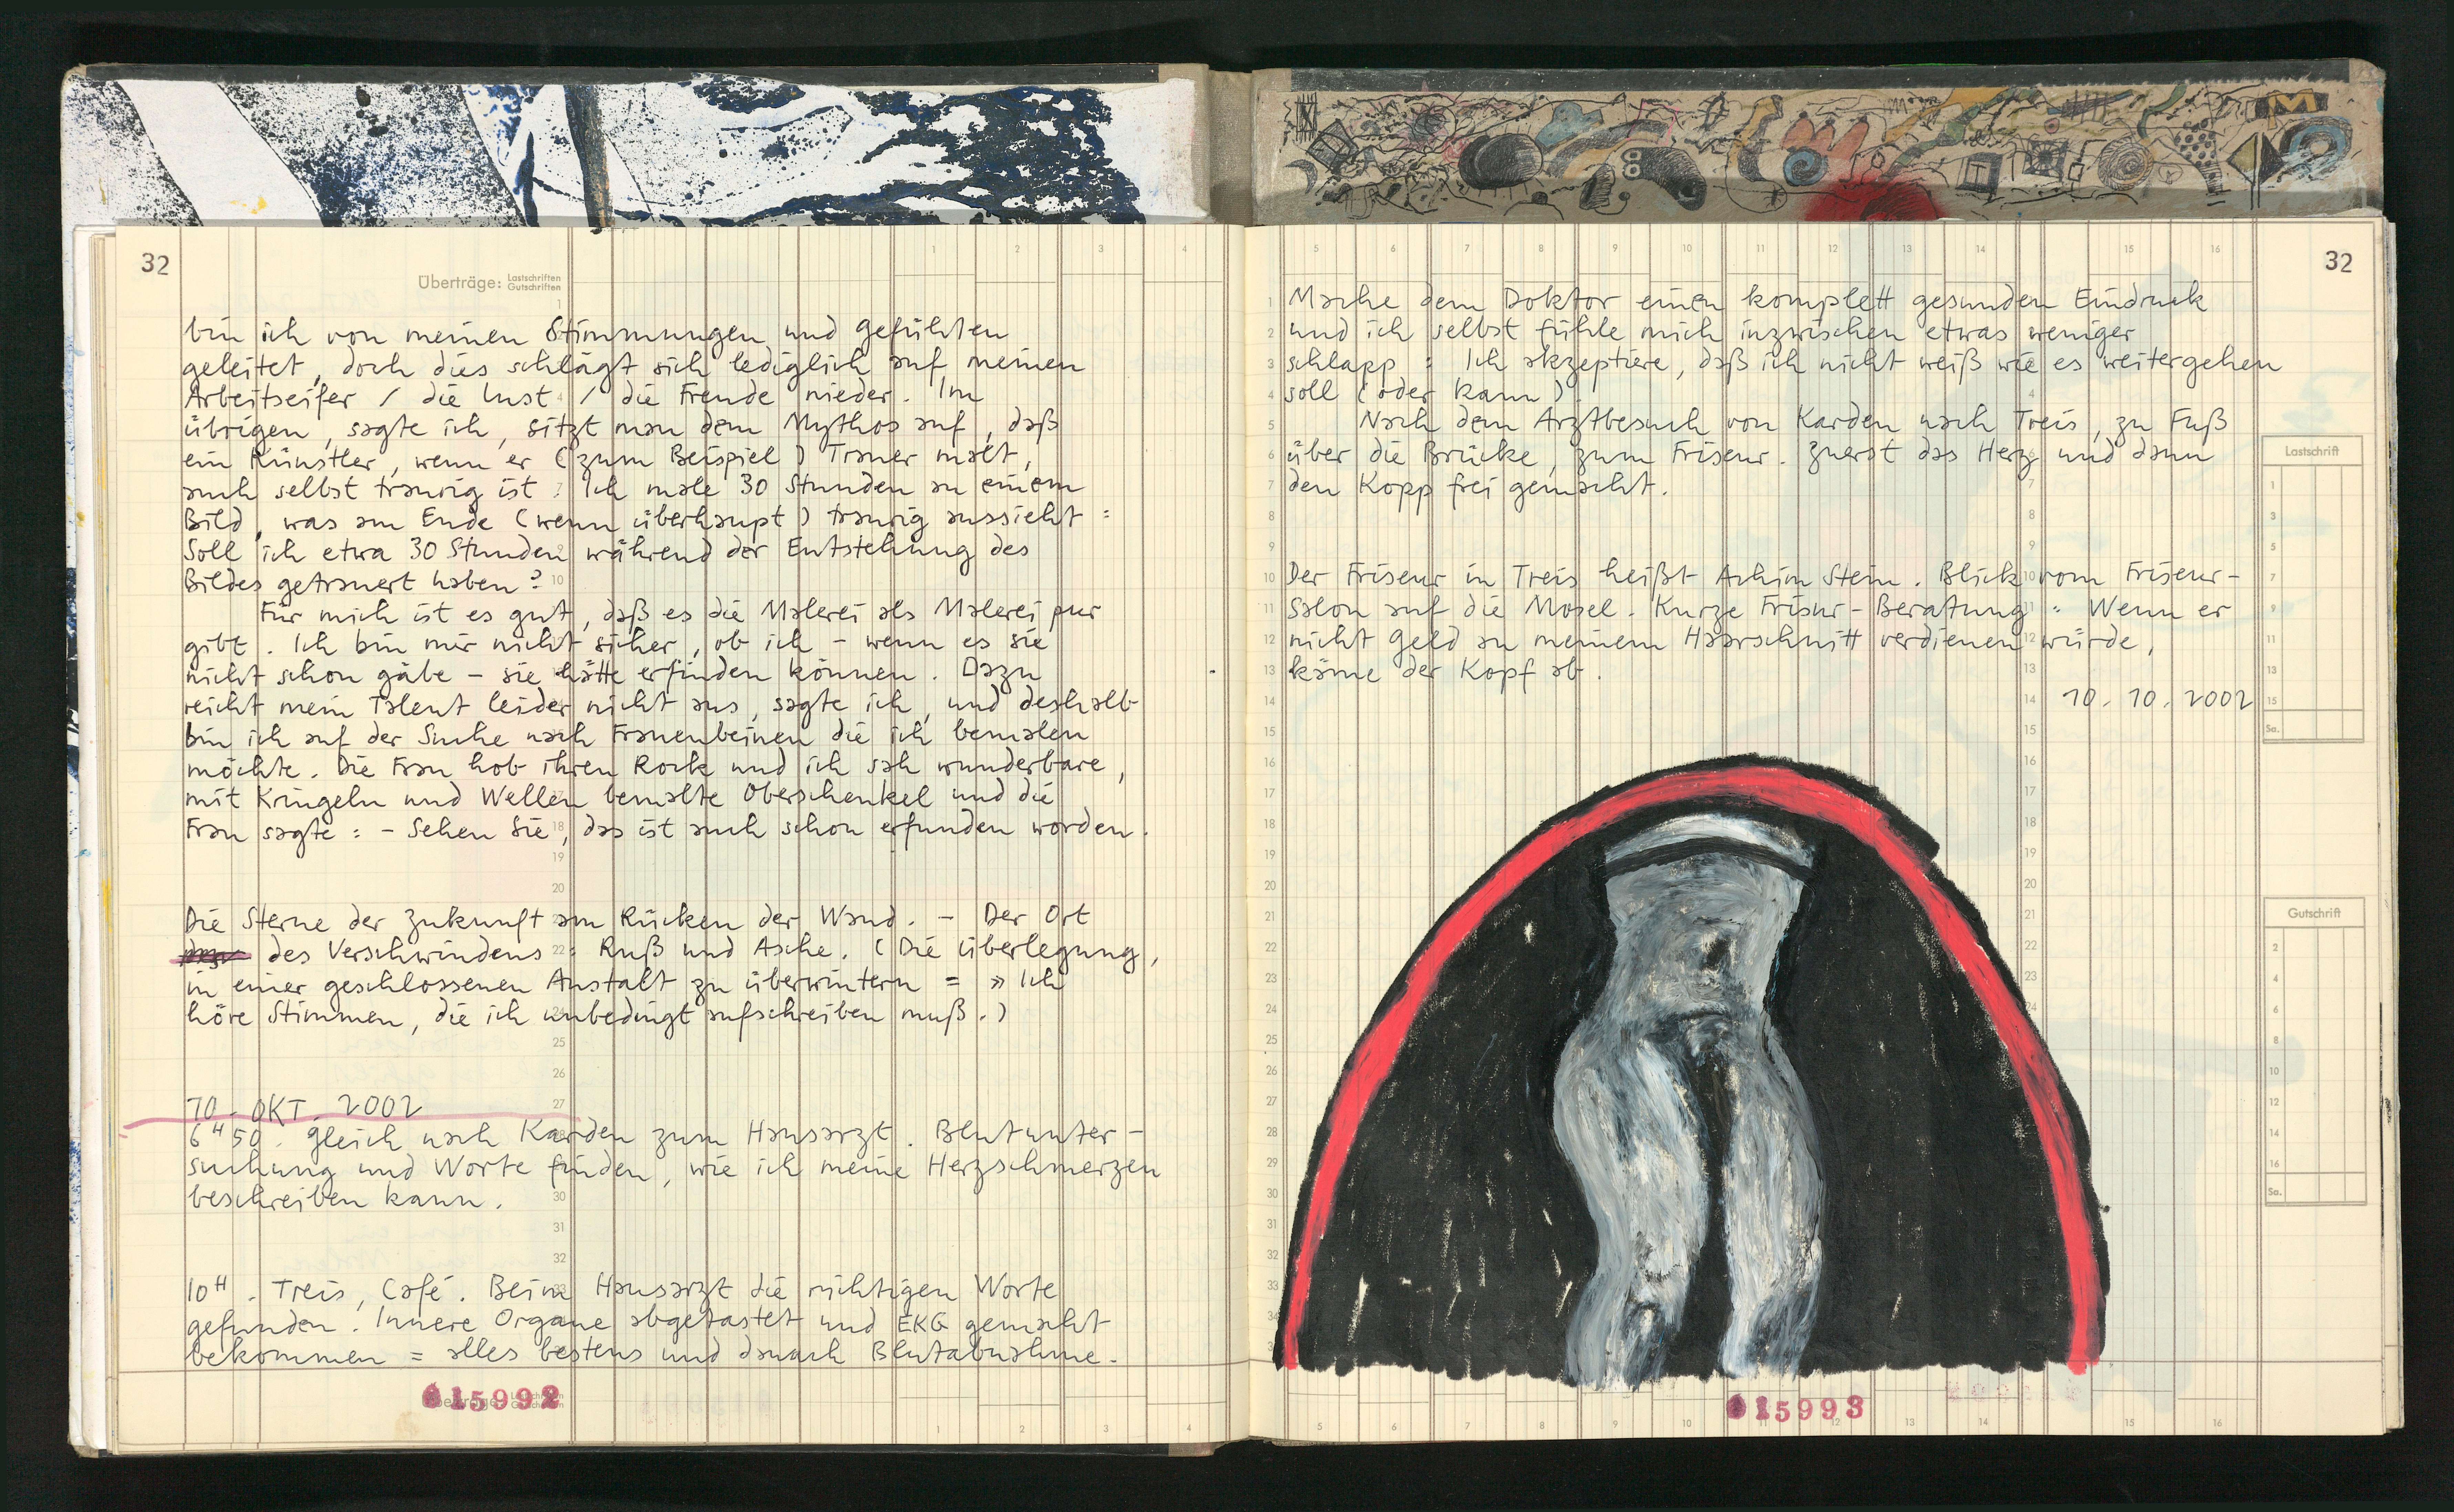 32
Überträge: Lastschriften
Gutschriften
bin ich von meinen Stimmungen und Gefühlen
geleitet, doch dies schlägt sich lediglich auf meinen
Arbeitseifer / die Lust / die Freude nieder. Im
übrigen, sagte ich, sitzt man dem Mythos auf, daß
ein Künstler, wenn er (zum Beispiel) Trauer malt,
auch selbst traurig ist: Ich male 30 Stunden an einem
Bild, was am Ende (wenn überhaupt) traurig aussieht:
Soll ich etwa 30 Stunden während der Entstehung des
Bildes getrauert haben?
Für mich ist es gut, daß es die Malerei als Malerei pur
gibt. Ich bin mir nicht sicher, ob ich – wenn es sie
nicht schon gäbe – sie hätte erfinden können. Dazu
reicht mein Talent leider nicht aus, sagte ich, und deshalb
bin ich auf der Suche nach Frauenbeinen die ich bemalen
möchte. Die Frau hob ihren Rock und ich sah wunderbare,
mit Kringeln und Wellen bemalte Oberschenkel und die
Frau sagte: – Sehen Sie, das ist auch schon erfunden worden.
Die Sterne der Zukunft am Rücken der Wand. – Der Ort
des Verschwindens: Ruß und Asche. (Die Überlegung,
in einer geschlossenen Anstalt zu überwintern = » Ich
höre Stimmen, die ich unbedingt aufschreiben muß.)
10. OKT. 2002
6H50. Gleich nach Karden zum Hausarzt. Blutunter-
suchung und Worte finden, wie ich meine Herzschmerzen
beschreiben kann.
10H. Treis, Café. Beim Hausarzt die richtigen Worte
gefunden. Innere Organe abgetastet und EKG gemacht
bekommen = alles bestens und danach Blutabnahme.
015992
32
Mache dem Doktor einen komplett gesunden Eindruck
und ich selbst fühle mich inzwischen etwas weniger
schlapp: Ich akzeptiere, daß ich nicht weiß wie es weitergehen
soll (oder kann).
Nach dem Arztbesuch von Karden nach Treis, zu Fuß
über die Brücke, zum Friseur. Zuerst das Herz und dann
den Kopp frei gemacht.
Der Friseur in Treis heißt Achim Stein. Blick vom Friseur-
Salon auf die Mosel. Kurze Frisur-Beratung: Wenn er
nicht Geld an meinem Haarschnitt verdienen würde,
käme der Kopf ab.
10. 10. 2002
Lastschrift
Sa.
Gutschrift
Sa.
015993